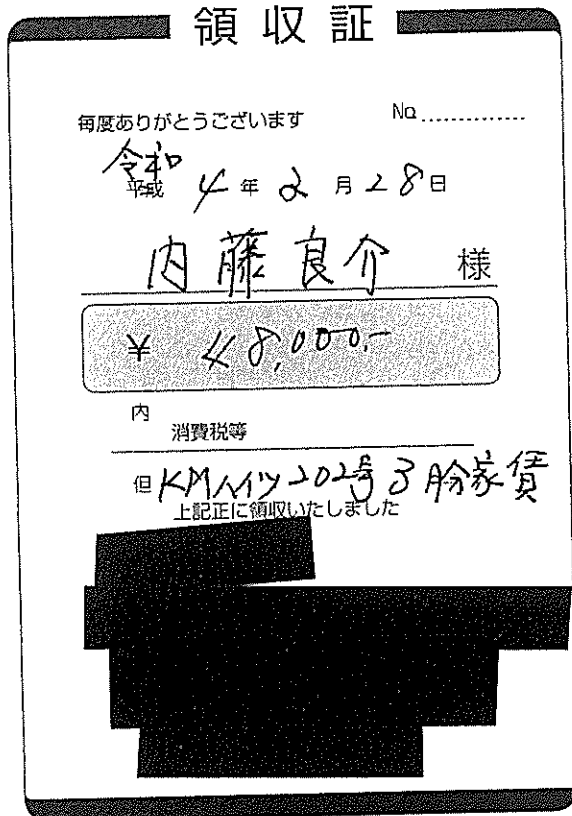 領収証
毎度ありがとうございます No.
令和
平成 4年2月28日
内藤良介 様
¥ 48,000.-
内
消費税等
但 KMハイツ202号3月分家賃
上記正に領収いたしました